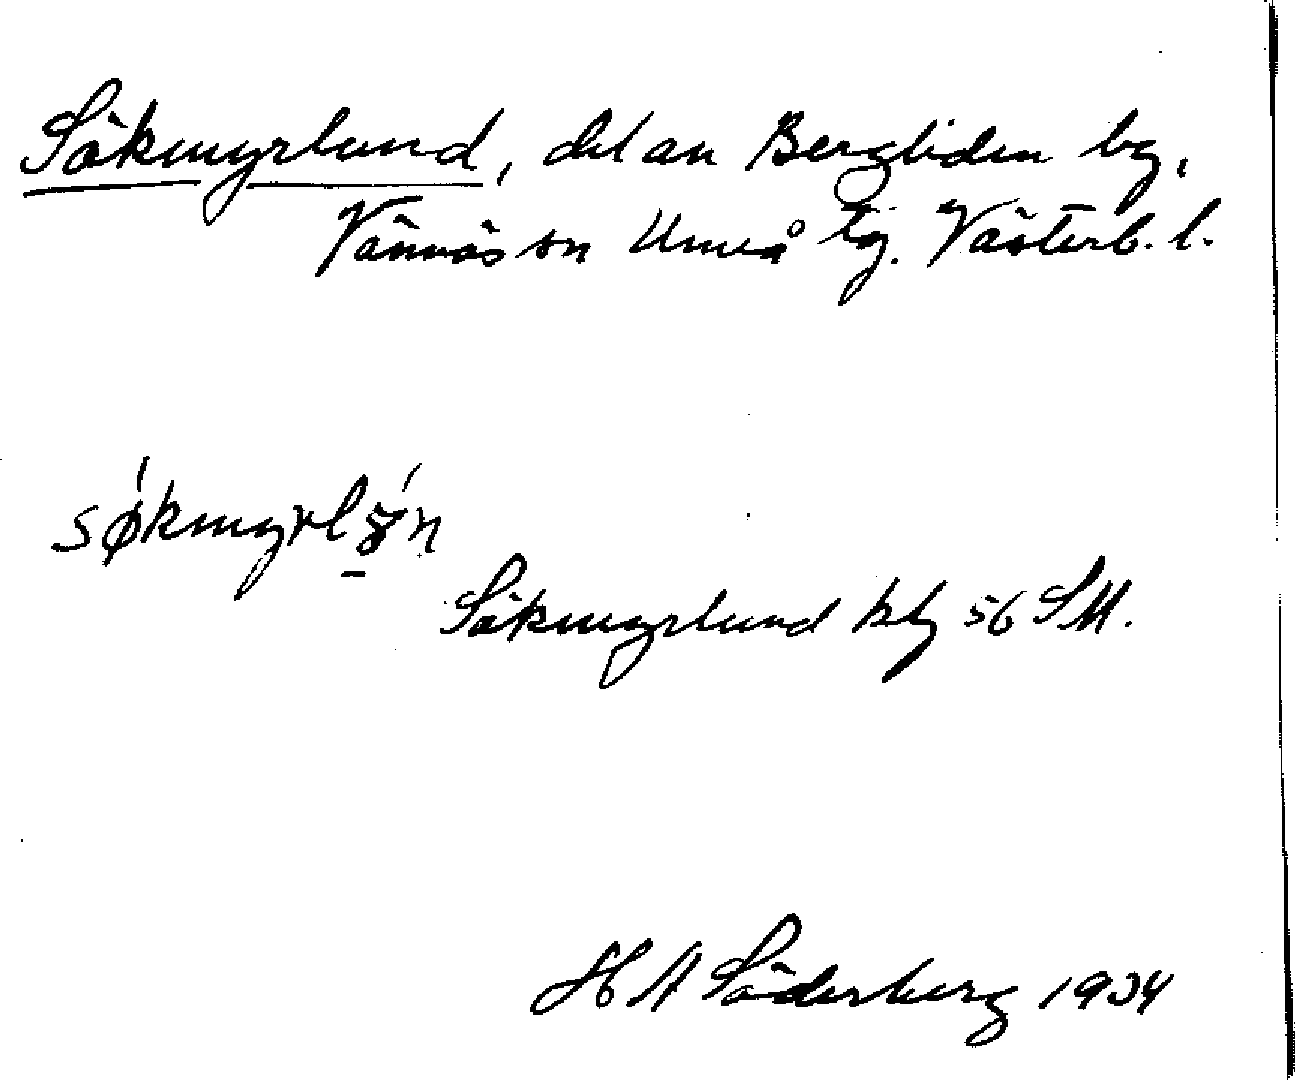 Sökmyrlund, del av Bergliden by,
Vännäs sn Umeå tg. Västerb. l.
Sökmyrlund blg 56 SM.
H A Söderberg 1934